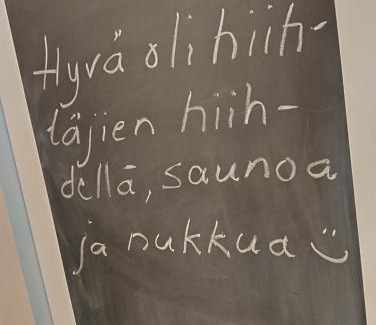 Hyvä oli hiih-
täjien hiih-
dellä, saunoa
ja nukkua ☺